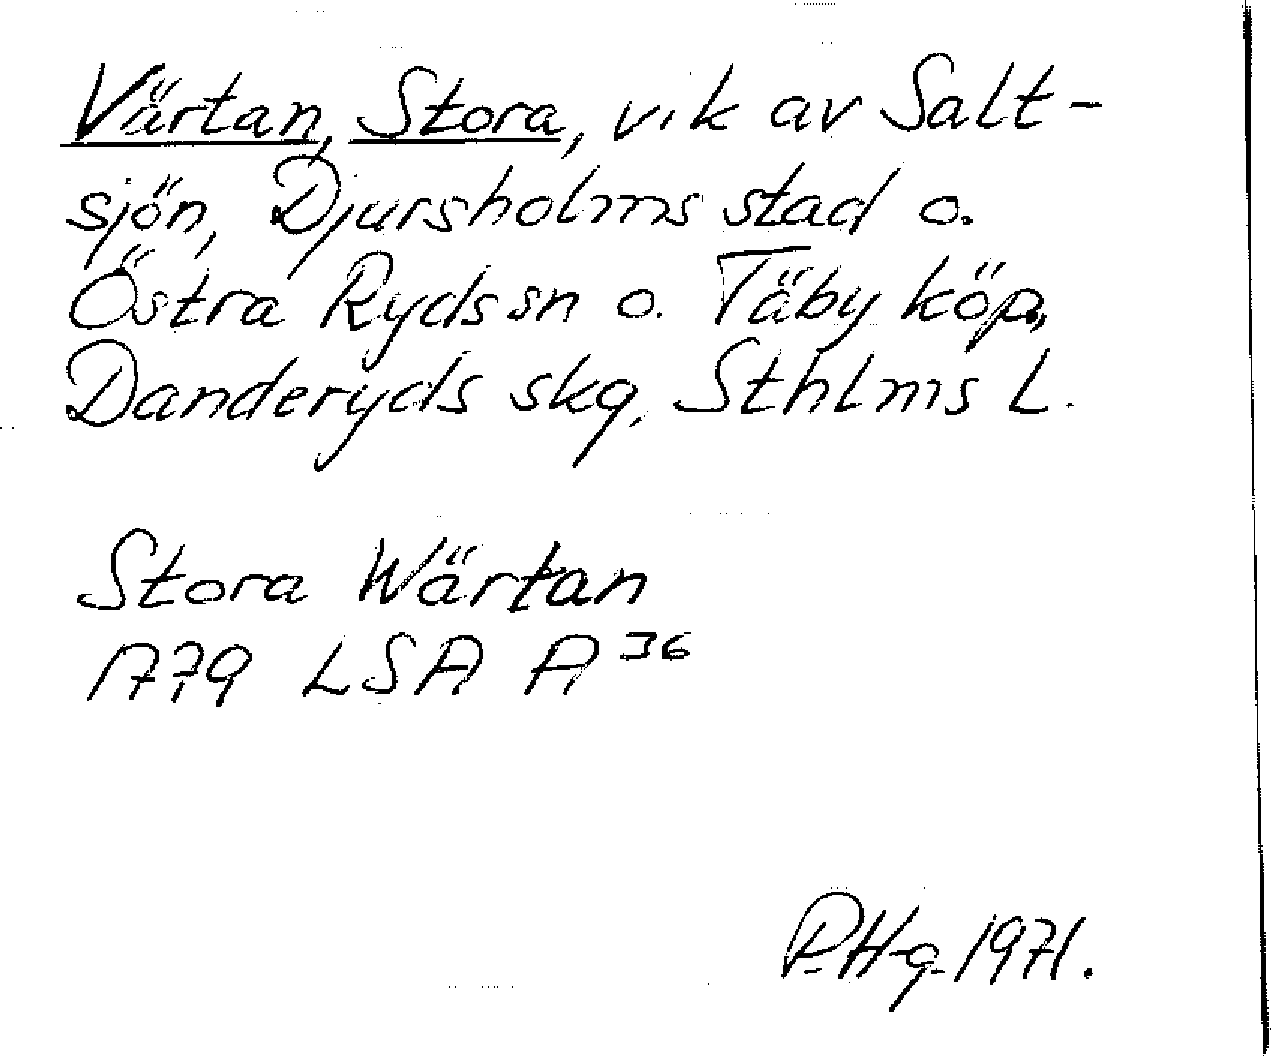 Värtan, Stora, vik av Salt-
sjön, Djursholms stad o.
Östra Ryds sn o. Täby köp.,
Danderyds skg, Sthlms L.
Stora Wärtan
1779 LSA A 36
P. H-g. 1971.